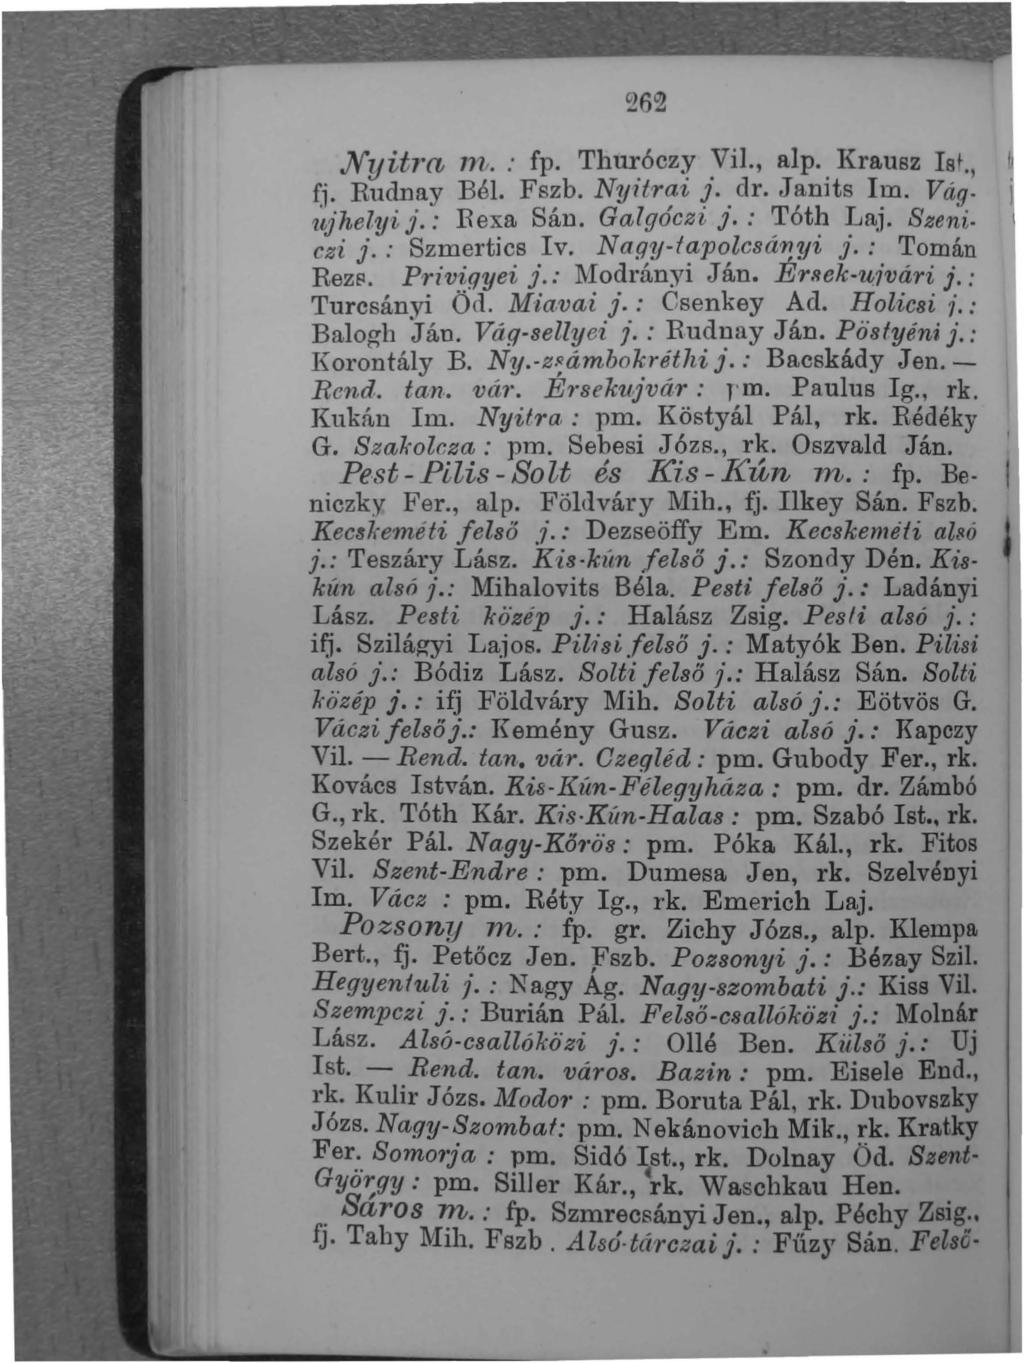 262
Nyitra m. : fp. Thuróczy Vil., alp. Krausz Ist.,
fj. Rudnay Bél. Fszb. Nyitrai j. dr. Janits Im. Vág-
ujhelyi j. : Rexa Sán. Galgóczi j. : Tóth Laj. Szeni-
czi j. : Szmertics Iv. Nagy-tapolcsányi j. : Tomán
Rezs. Privigyei j. : Modrányi Ján. Érsek-ujvári j. :
Turcsányi Öd. Miavai j. : Csenkey Ad. Holicsi j. :
Balogh Ján. Vág-sellyei j. : Rudnay Ján. Pöstyéni j. :
Korontály B. Ny.-zsámbokréthi j. : Bacskády Jen. —
Rend. tan. vár. Érsekujvár : pm. Paulus Ig., rk.
Kukán Im. Nyitra : pm. Köstyál Pál, rk. Rédéky
G. Szakolcza : pm. Sebesi Józs., rk. Oszvald Ján.
Pest-Pilis-Solt és Kis-Kún m. : fp. Be-
niczky Fer., alp. Földváry Mih., fj. Ilkey Sán. Fszb.
Kecskeméti felső j. : Dezseöffy Em. Kecskeméti alsó
j. : Teszáry Lász. Kis-kún felső j. : Szondy Dén. Kis-
kún alsó j. : Mihalovits Béla. Pesti felső j. : Ladányi
Lász. Pesti közép j. : Halász Zsig. Pesti alsó j. :
ifj. Szilágyi Lajos. Pilisi felső j. : Matyók Ben. Pilisi
alsó j. : Bódiz Lász. Solti felső j. : Halász Sán. Solti
közép j. : ifj Földváry Mih. Solti alsó j. : Eötvös G.
Váczi felső j. : Kemény Gusz. Váczi alsó j. : Kapczy
Vil. — Rend. tan. vár. Czegléd : pm. Gubody Fer., rk.
Kovács István. Kis-Kún-Félegyháza : pm. dr. Zámbó
G., rk. Tóth Kár. Kis-Kún-Halas : pm. Szabó Ist., rk.
Szekér Pál. Nagy-Kőrös : pm. Póka Kál., rk. Fitos
Vil. Szent-Endre : pm. Dumesa Jen, rk. Szelvényi
Im. Vácz : pm. Réty Ig., rk. Emerich Laj.
Pozsony m. : fp. gr. Zichy Józs., alp. Klempa
Bert., fj. Petőcz Jen. Fszb. Pozsonyi j. : Bézay Szil.
Hegyentuli j. : Nagy Ág. Nagy-szombati j. : Kiss Vil.
Szempczi j. : Burián Pál. Felső-csallóközi j. : Molnár
Lász. Alsó-csallóközi j. : Ollé Ben. Külső j. : Uj
Ist. — Rend. tan. város. Bazin : pm. Eisele End.,
rk. Kulir Józs. Modor : pm. Boruta Pál, rk. Dubovszky
Józs. Nagy-Szombat: pm. Nekánovich Mik., rk. Kratky
Fer. Somorja : pm. Sidó Ist., rk. Dolnay Öd. Szent-
György : pm. Siller Kár., rk. Waschkau Hen.
Sáros m. : fp. Szmrecsányi Jen., alp. Péchy Zsig.,
fj. Tahy Mih. Fszb . Alsó-tárczai j. : Fűzy Sán. Felső-